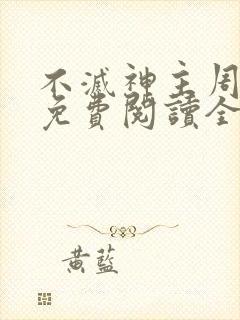 不滅神主周
免費閱讀全
黃藍